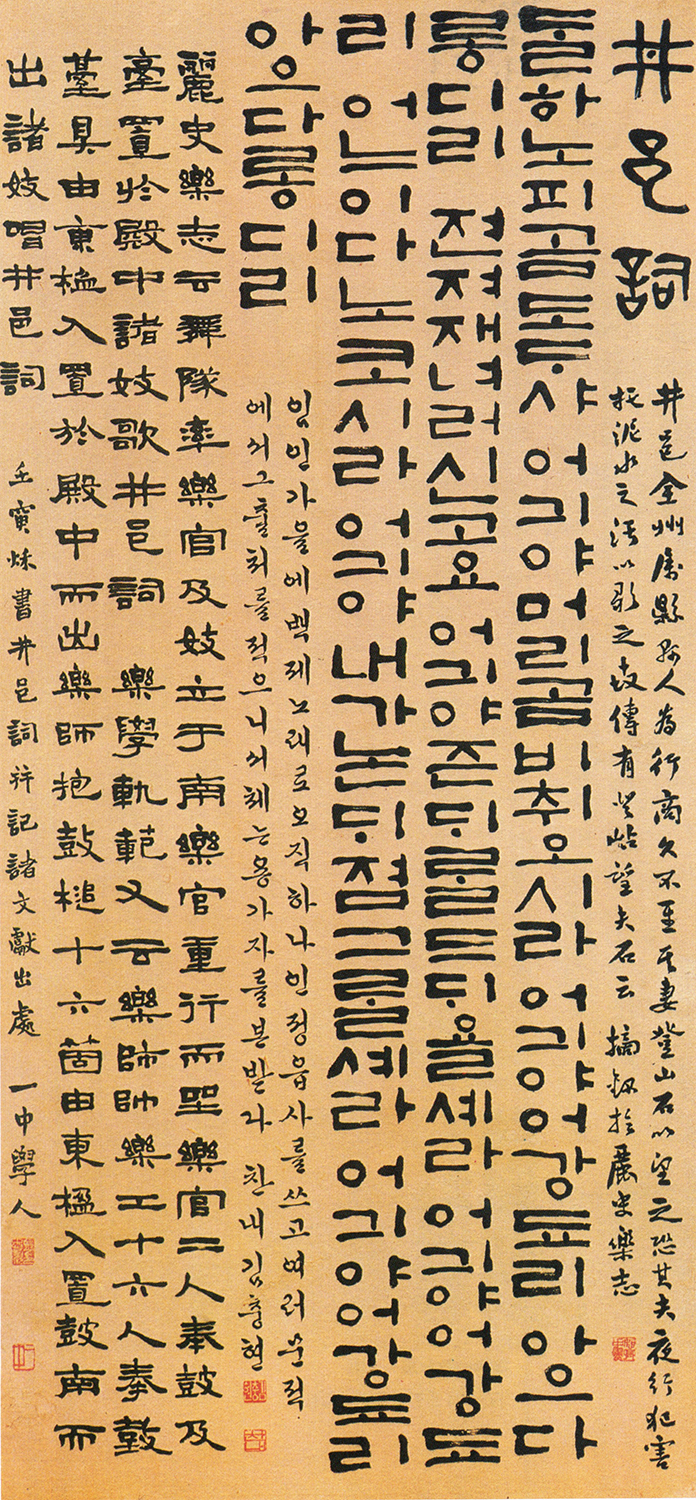 井邑詞
井邑全州屬縣縣人爲行商久不至其妻登山石以望之恐其夫夜行犯害
托泥水之汚以歌之 傳有登岾望夫石云 摘錄於麗史樂志
ᄃᆞᆯ하노피곰도ᄃᆞ샤 어긔야머리곰비취오시라 어긔야어강됴리 아으다
롱디리 젼져재녀러신고요 어긔야즌ᄃᆡᄅᆞᆯ드ᄃᆡ욜셰라 어긔야어강됴
리 어느이다노코시라 어긔야내가논ᄃᆡ졈그ᄅᆞᆯ셰라 어긔야어강됴리
아으다롱디리
임인가을에백제노래로오직하나인정읍사를쓰고여러문적
에서그출처를적으니서체는용가자를본받다 찬내김충현
麗史樂志云舞隊率樂官及妓立于南樂官重行而坐樂官二人奉鼓及
臺置於殿中諸妓歌井邑詞 樂學軌範又云樂師帥樂工十六人奉鼓
臺具由東楹入置於殿中而出樂師抱鼓槌十六箇由東楹入置鼓南而
出諸妓唱井邑詞 壬寅秌書井邑詞幷記諸文獻出處 一中學人